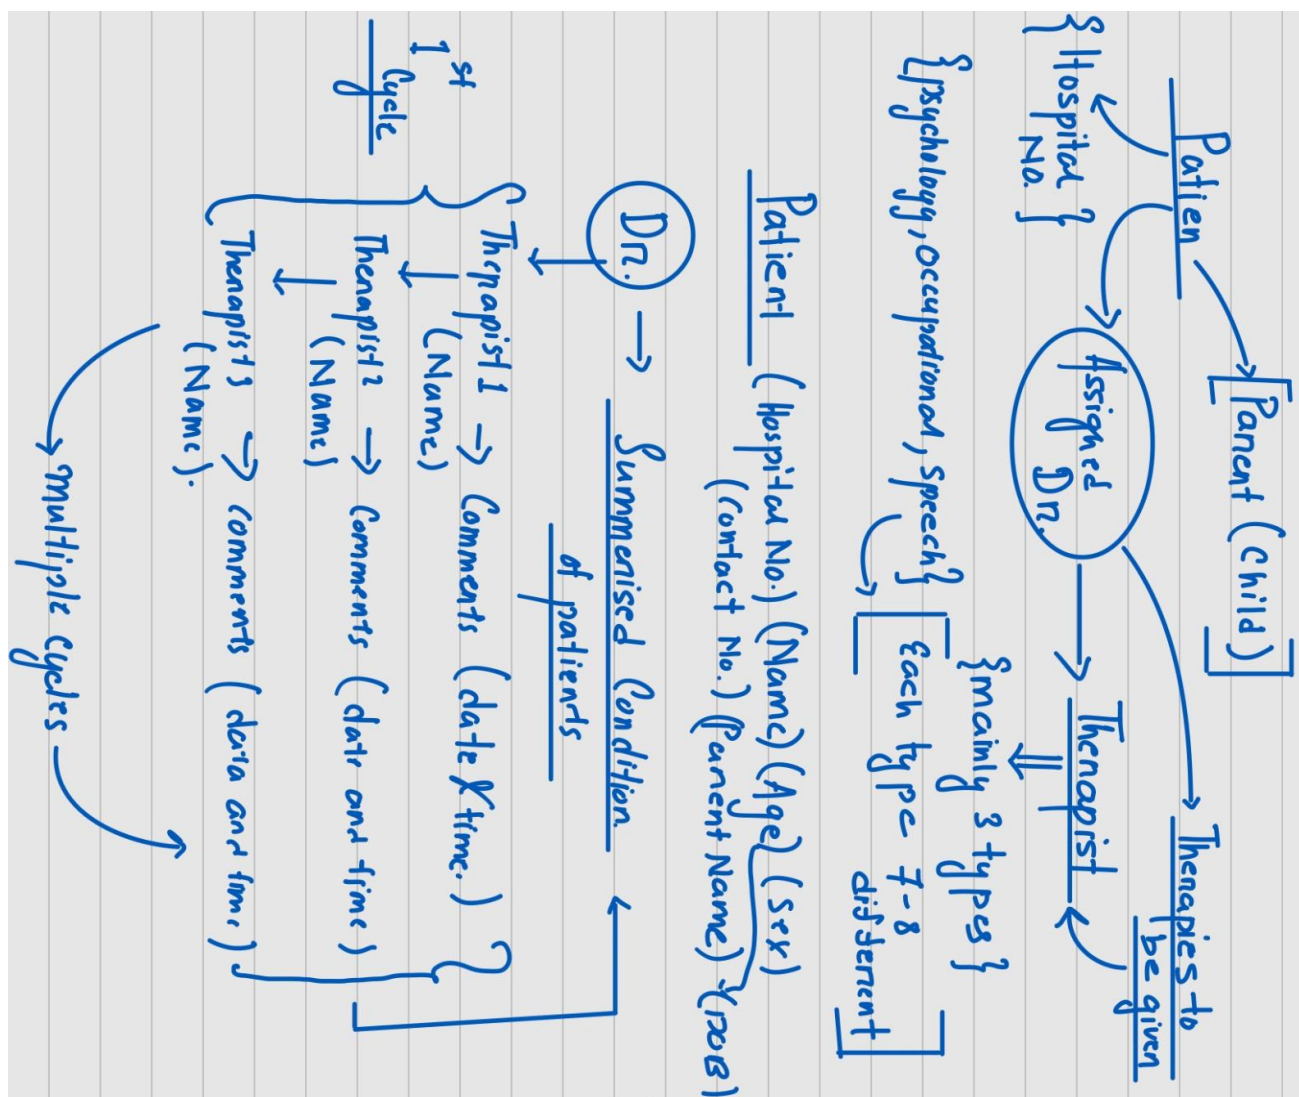 Patien
[Parent (Child)]
{Hospital
No.}
Assigned
Dr.
Therapist
Therapies to
be given
{mainly 3 types}
{psychology, occupational, speech}
[Each type 7-8
different]
Patient (Hospital No.) (Name) (Age) (Sex)
(Contact No.) (Parent Name) (DOB)
Dr. → Summerised Condition
of patients
1st
Cycle
Therapist 1 → Comments (date & time.)
(Name)
Therapist 2 → Comments (date and time)
(Name)
Therapist 3 → comments (data and time)
(Name).
multiple cycles